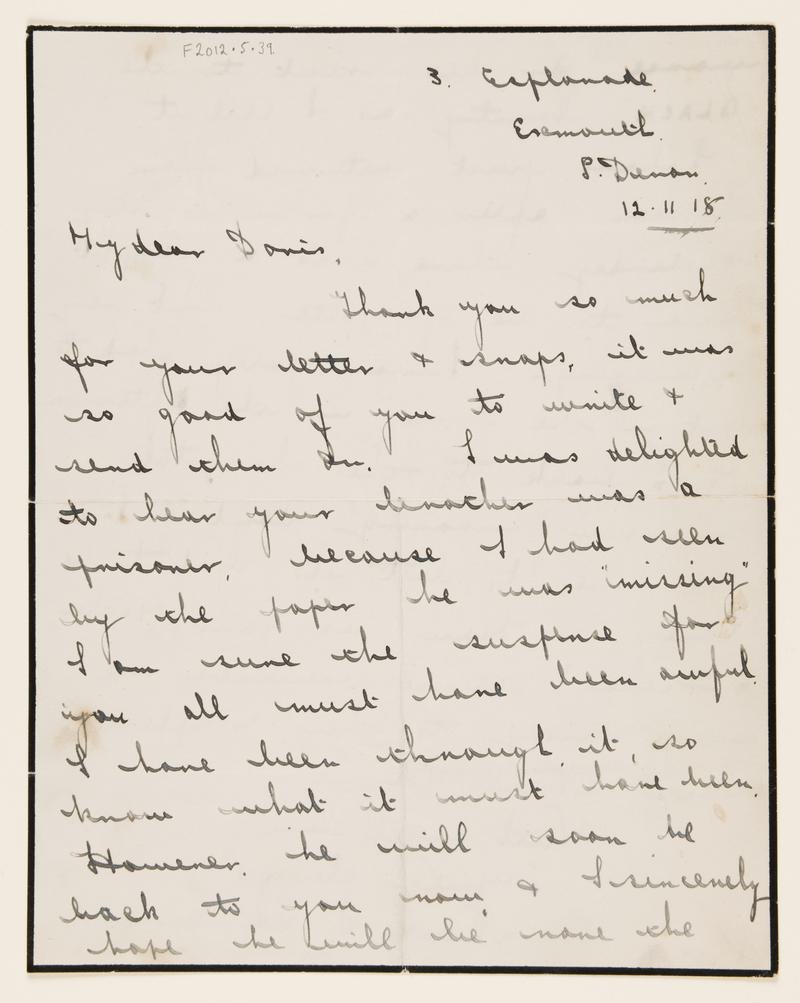 F2012.5.39.
3. Esplanade.
Exmouth.
S. Devon.
12.11 18
My dear Doris,
Thank you so much
for your letter & snaps, it was
so good of you to write &
send them on. I was delighted
to hear your brother was a
prisoner, because I had seen
by the paper he was "missing"
I am sure the suspense for
you all must have been awful.
I have been through it, so
know what it must have been.
However, he will soon be
back to you now, & I sincerely
hope he will be none the